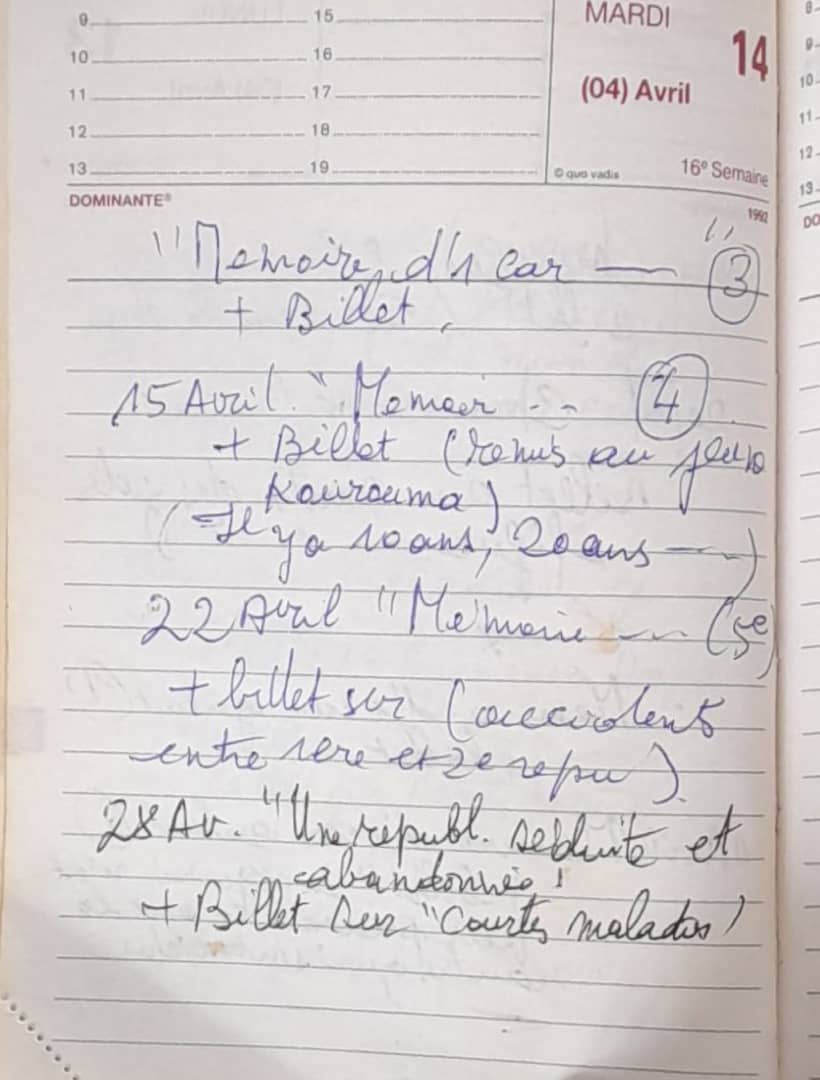 9 15
10 16
11 17
12 18
13 19
MARDI
14
(04) Avril
© quo vadis
16e Semaine
DOMINANTE®
1992
"Memoire d'1 car — " 3
+ Billet,
15 Avril. "Memoir -- 4
+ Billet (remis au
Kourouma)
(Il y a 10 ans, 20 ans —)
22 Avril "Mémoire — (5e)
+ billet sur (accidents
entre 1ere et 2e repu).
28 Av. "Une republ. séduite et
abandonnée!
+ Billet sur "Courtes malades)
9
10
11
12
13
DO